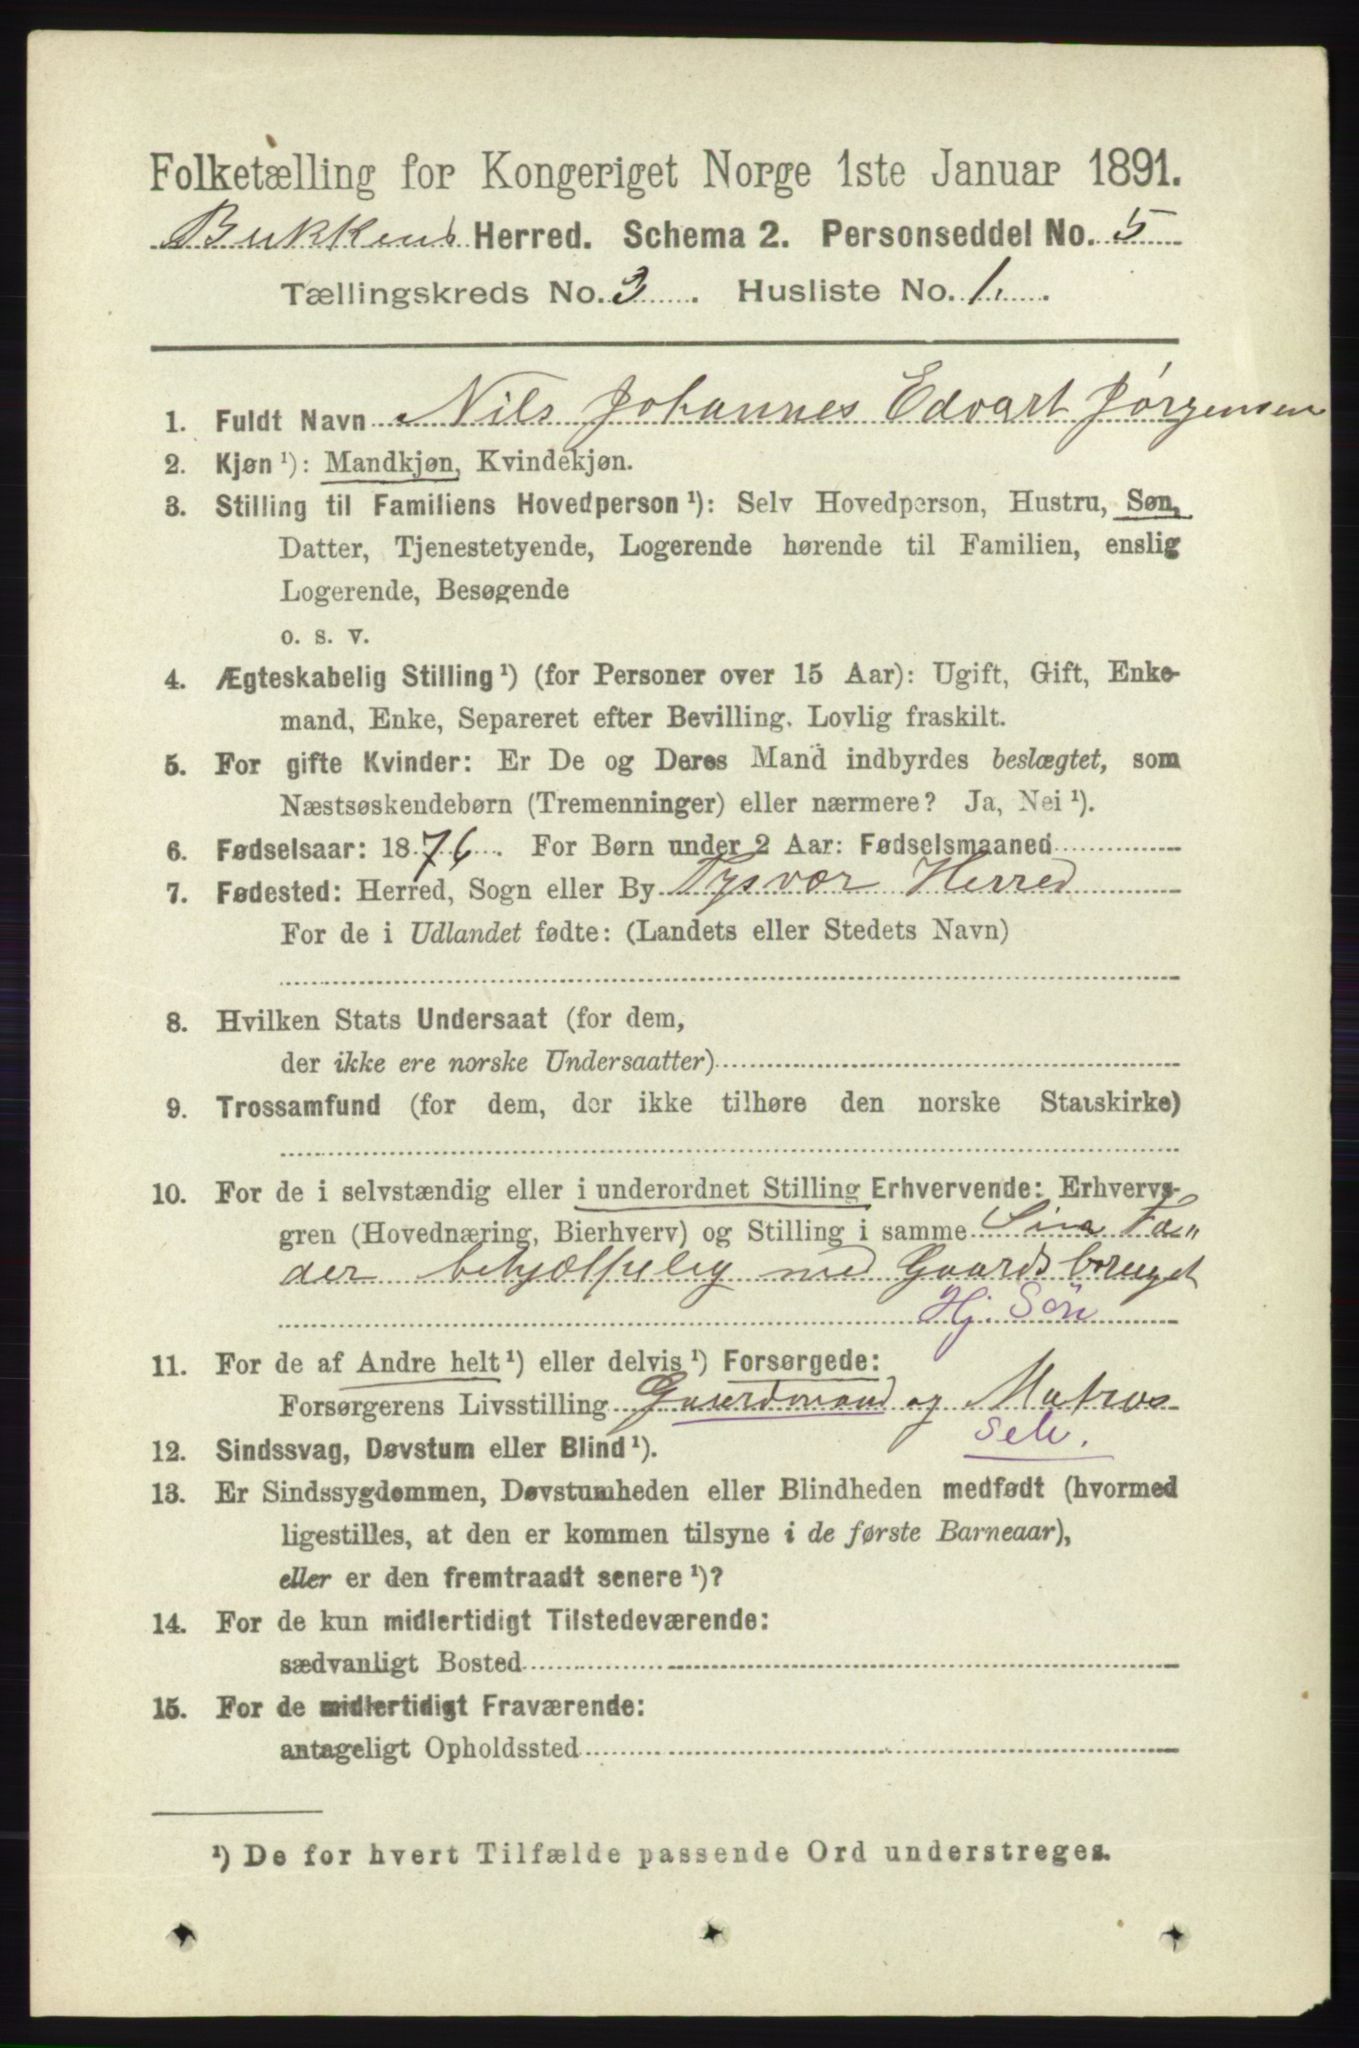 Folketælling for Kongeriget Norge 1ste Januar 1891.
Bukkens Herred. Schema 2. Personseddel No. 5
Tællingskreds No. 3. Husliste No. 1.
1. Fuldt Navn Nils Johannes Edvart Jørgensen
2. Kjøn ¹): Mandkjøn, Kvindekjøn.
3. Stilling til Familiens Hovedperson ¹): Selv Hovedperson, Hustru, Søn,
Datter, Tjenestetyende, Logerende hørende til Familien, enslig
Logerende, Besøgende
o. s. v.
4. Ægteskabelig Stilling ¹) (for Personer over 15 Aar): Ugift, Gift, Enke-
mand, Enke, Separeret efter Bevilling. Lovlig fraskilt.
5. For gifte Kvinder: Er De og Deres Mand indbyrdes beslægtet, som
Næstsøskendebørn (Tremenninger) eller nærmere? Ja, Nei ¹).
6. Fødselsaar: 1876. For Børn under 2 Aar: Fødselsmaaned
7. Fødested: Herred, Sogn eller By Tysvær Herred
For de i Udlandet fødte: (Landets eller Stedets Navn)
8. Hvilken Stats Undersaat (for dem,
der ikke ere norske Undersaatter)
9. Trossamfund (for dem, der ikke tilhøre den norske Statskirke)
10. For de i selvstændig eller i underordnet Stilling Erhvervende: Erhvervs-
gren (Hovednæring, Bierhverv) og Stilling i samme Sin Fa„
der behjælpelig med Gaardsbruget
Hj. Søn
11. For de af Andre helt ¹) eller delvis ¹) Forsørgede:
Forsørgerens Livsstilling Gaardmand og Matros
Selv.
12. Sindssvag, Døvstum eller Blind ¹).
13. Er Sindssygdommen, Døvstumheden eller Blindheden medfødt (hvormed
ligestilles, at den er kommen tilsyne i de første Barneaar),
eller er den fremtraadt senere ¹)?
14. For de kun midlertidigt Tilstedeværende:
sædvanligt Bosted
15. For de midlertidigt Fraværende:
antageligt Opholdssted
¹) De for hvert Tilfælde passende Ord understreges.